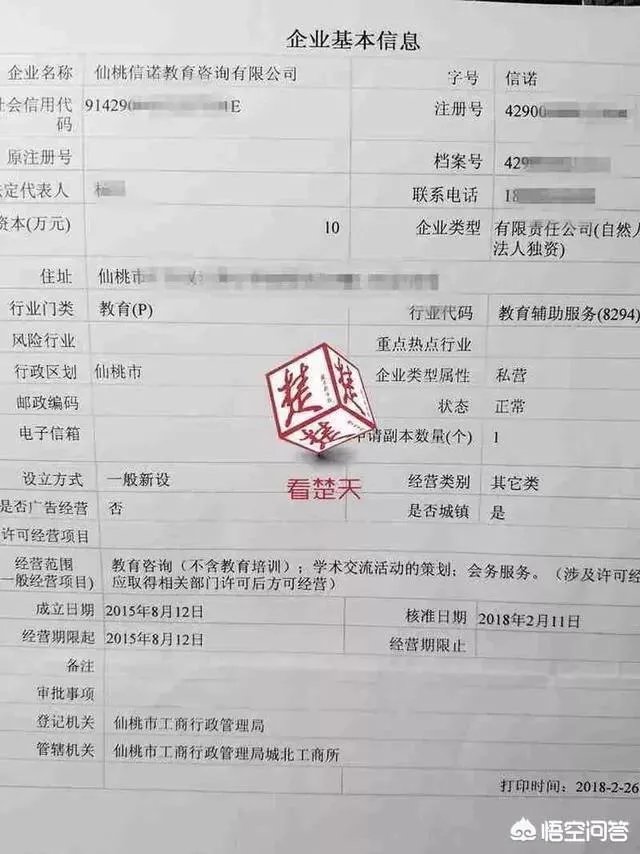 企业基本信息
企业名称 仙桃信诺教育咨询有限公司 字号 信诺
社会信用代码 91429 E 注册号 42900
原注册号 档案号 429
法定代表人 杨 联系电话 18
资本(万元) 10 企业类型 有限责任公司(自然人
法人独资)
住址 仙桃市
行业门类 教育(P) 行业代码 教育辅助服务(8294)
风险行业 重点热点行业
行政区划 仙桃市 企业类型属性 私营
邮政编码 状态 正常
电子信箱 申请副本数量(个) 1
设立方式 一般新设 经营类别 其它类
是否广告经营 否 是否城镇 是
许可经营项目
经营范围 教育咨询（不含教育培训）；学术交流活动的策划；会务服务。（涉及许可经
一般经营项目) 应取得相关部门许可后方可经营）
成立日期 2015年8月12日 核准日期 2018年2月11日
经营期限起 2015年8月12日 经营期限止
备注
审批事项
登记机关 仙桃市工商行政管理局
管辖机关 仙桃市工商行政管理局城北工商所
打印时间：2018-2-26
楚
看楚天
悟空问答